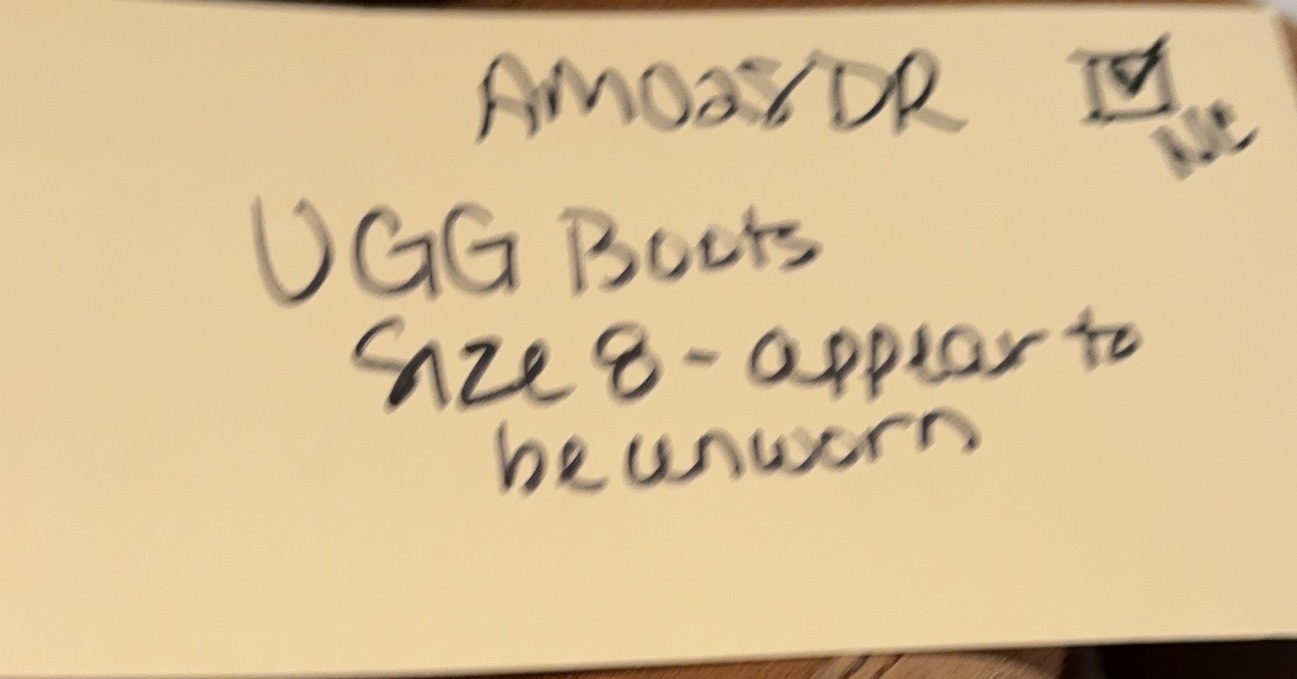 AM028DR
UGG Boots
Size 8 - appear to
be unworn